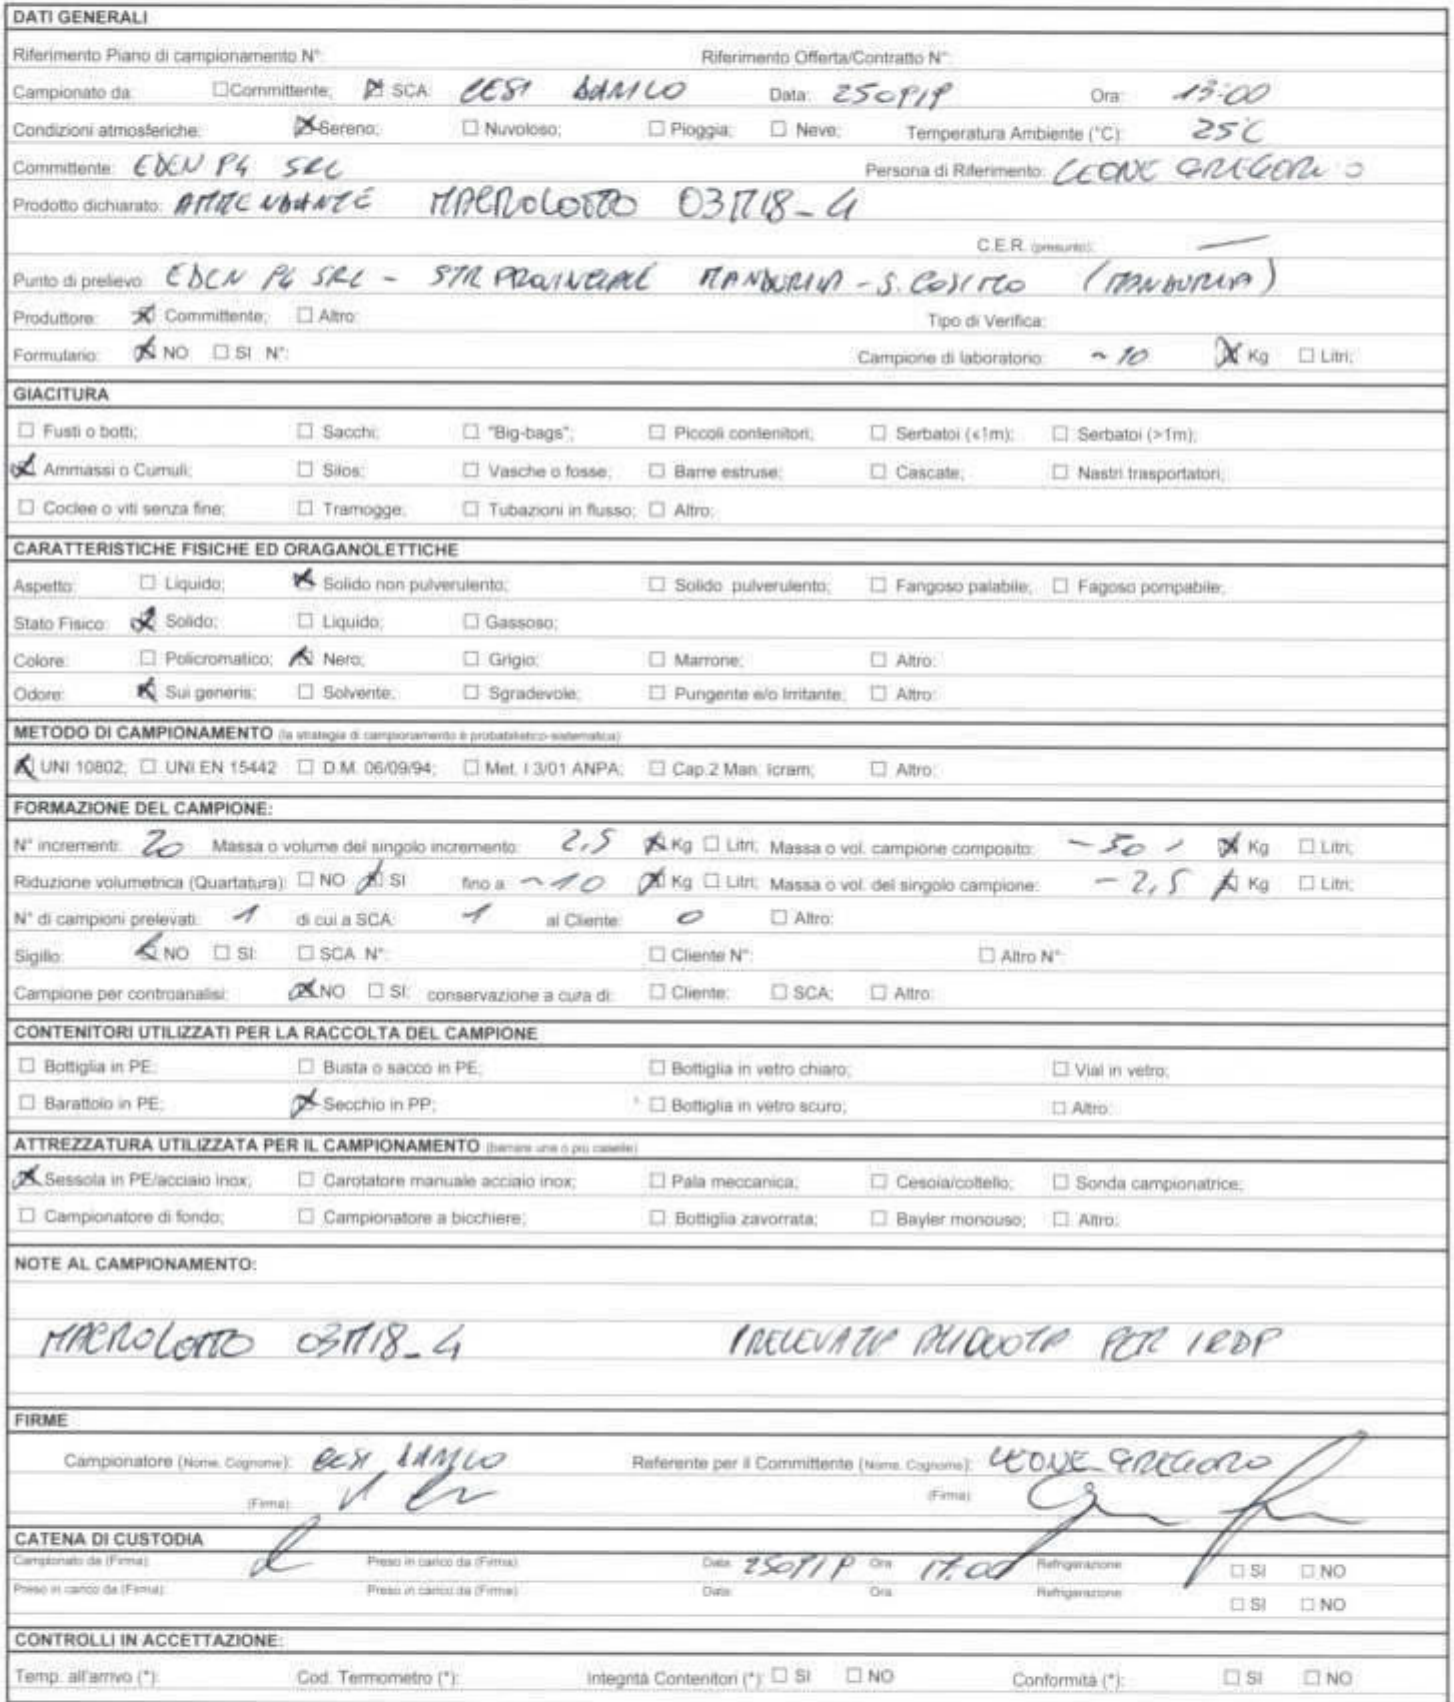 DATI GENERALI
Riferimento Piano di campionamento N°: Riferimento Offerta/Contratto N°:
Campionato da: ☐Committente; ☒ SCA: CESI DANILO Data: 250919 Ora: 13:00
Condizioni atmosferiche: ☒Sereno; ☐ Nuvoloso; ☐ Pioggia; ☐ Neve; Temperatura Ambiente (°C): 25°C
Committente: EDEN 94 SRL Persona di Riferimento: LEONE GREGORIO
Prodotto dichiarato: AMMENDANTE MACROLOTTO 03M18_4
C.E.R. (presunto): —
Punto di prelievo: EDEN 94 SRL - STR PROVINCIALE MANDURIA - S. COSIMO (MANDURIA)
Produttore: ☒ Committente; ☐ Altro: Tipo di Verifica:
Formulario: ☒ NO ☐ SI N°: Campione di laboratorio: ~ 10 ☒ Kg ☐ Litri;
GIACITURA
☐ Fusti o botti; ☐ Sacchi; ☐ "Big-bags"; ☐ Piccoli contenitori; ☐ Serbatoi (≤1m); ☐ Serbatoi (>1m);
☒ Ammassi o Cumuli; ☐ Silos; ☐ Vasche o fosse; ☐ Barre estruse; ☐ Cascate; ☐ Nastri trasportatori;
☐ Coclee o viti senza fine; ☐ Tramogge; ☐ Tubazioni in flusso; ☐ Altro:
CARATTERISTICHE FISICHE ED ORAGANOLETTICHE
Aspetto: ☐ Liquido; ☒ Solido non pulverulento; ☐ Solido pulverulento; ☐ Fangoso palabile; ☐ Fagoso pompabile;
Stato Fisico: ☒ Solido; ☐ Liquido; ☐ Gassoso;
Colore: ☐ Policromatico; ☒ Nero; ☐ Grigio; ☐ Marrone; ☐ Altro:
Odore: ☒ Sui generis; ☐ Solvente; ☐ Sgradevole; ☐ Pungente e/o Irritante; ☐ Altro:
METODO DI CAMPIONAMENTO (la strategia di campionamento è probabilistico-sistematica)
☒ UNI 10802; ☐ UNI EN 15442 ☐ D.M. 06/09/94; ☐ Met. I 3/01 ANPA; ☐ Cap.2 Man. Icram; ☐ Altro:
FORMAZIONE DEL CAMPIONE:
N° incrementi: 20 Massa o volume del singolo incremento: 2,5 ☒ Kg ☐ Litri; Massa o vol. campione composito: ~ 50 ☒ Kg ☐ Litri;
Riduzione volumetrica (Quartatura): ☐ NO ☒ SI fino a: ~ 10 ☒ Kg ☐ Litri; Massa o vol. del singolo campione: ~ 2,5 ☒ Kg ☐ Litri;
N° di campioni prelevati: 1 di cui a SCA: 1 al Cliente: 0 ☐ Altro:
Sigillo: ☒ NO ☐ SI: ☐ SCA N°: ☐ Cliente N°: ☐ Altro N°:
Campione per controanalisi: ☒ NO ☐ SI: conservazione a cura di: ☐ Cliente; ☐ SCA; ☐ Altro:
CONTENITORI UTILIZZATI PER LA RACCOLTA DEL CAMPIONE
☐ Bottiglia in PE; ☐ Busta o sacco in PE; ☐ Bottiglia in vetro chiaro; ☐ Vial in vetro;
☐ Barattolo in PE; ☒ Secchio in PP; ☐ Bottiglia in vetro scuro; ☐ Altro:
ATTREZZATURA UTILIZZATA PER IL CAMPIONAMENTO (barrare una o più caselle)
☒ Sessola in PE/acciaio inox; ☐ Carotatore manuale acciaio inox; ☐ Pala meccanica; ☐ Cesoia/coltello; ☐ Sonda campionatrice;
☐ Campionatore di fondo; ☐ Campionatore a bicchiere; ☐ Bottiglia zavorrata; ☐ Bayler monouso; ☐ Altro:
NOTE AL CAMPIONAMENTO:
MACROLOTTO 03M18_4 PRELEVATA ALIQUOTA PER IRDP
FIRME
Campionatore (Nome, Cognome): CESI DANILO Referente per il Committente (Nome, Cognome): LEONE GREGORIO
(Firma): (Firma):
CATENA DI CUSTODIA
Campionato da (Firma): Preso in carico da (Firma): Data: 250919 Ora: 17.00 Refrigerazione: ☐ SI ☐ NO
Preso in carico da (Firma): Preso in carico da (Firma): Data: Ora: Refrigerazione: ☐ SI ☐ NO
CONTROLLI IN ACCETTAZIONE:
Temp. all'arrivo (*): Cod. Termometro (*): Integrità Contenitori (*): ☐ SI ☐ NO Conformità (*): ☐ SI ☐ NO